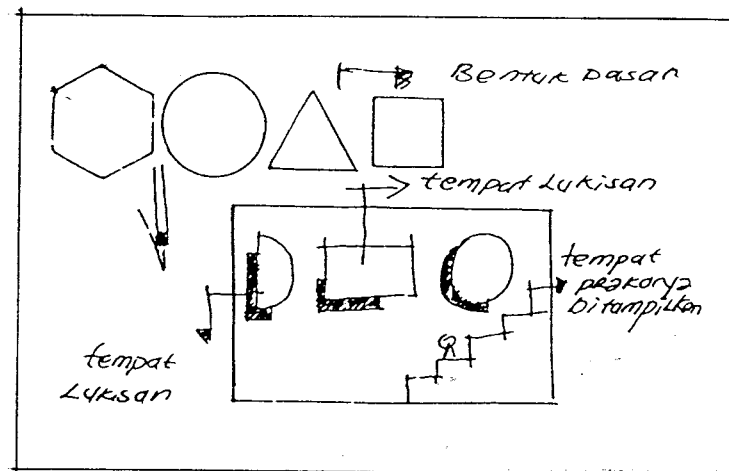 Bentuk Dasar
tempat Lukisan
tempat
prakarya
Ditampilkan
tempat
Lukisan